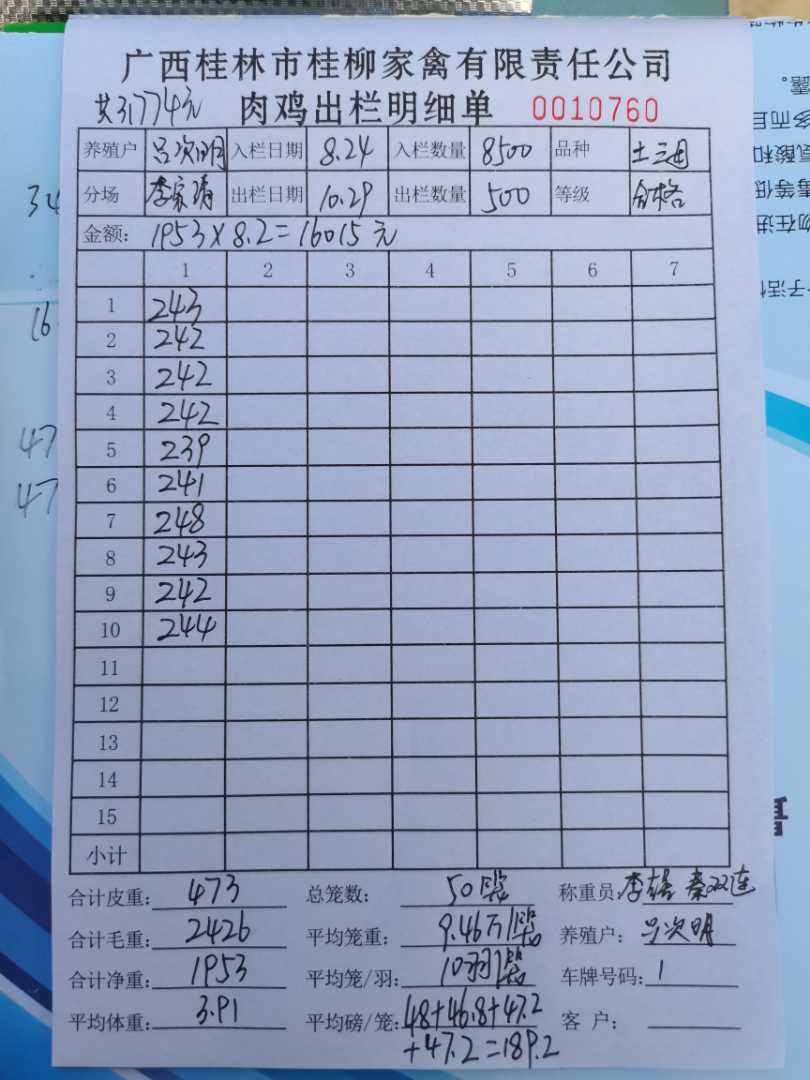 广西桂林市桂柳家禽有限责任公司
共31774元 肉鸡出栏明细单 0010760
养殖户 吕次明 入栏日期 8.24 入栏数量 8500 品种 土三
分场 李家 出栏日期 10.29 出栏数量 500 等级 合格
金额: 1953×8.2=16015元
1 2 3 4 5 6 7
1 243
2 242
3 242
4 242
5 239
6 241
7 248
8 243
9 242
10 244
11
12
13
14
15
小计
合计皮重: 473 总笼数: 50 称重员: 李 秦双连
合计毛重: 2426 平均笼重: 9.46 养殖户: 吕次明
合计净重: 1953 平均笼/羽: 10羽/ 车牌号码: 1
平均体重: 3.91 平均磅/笼: 48+46.8+47.2 客户:
+47.2=189.2
34
16
47
47